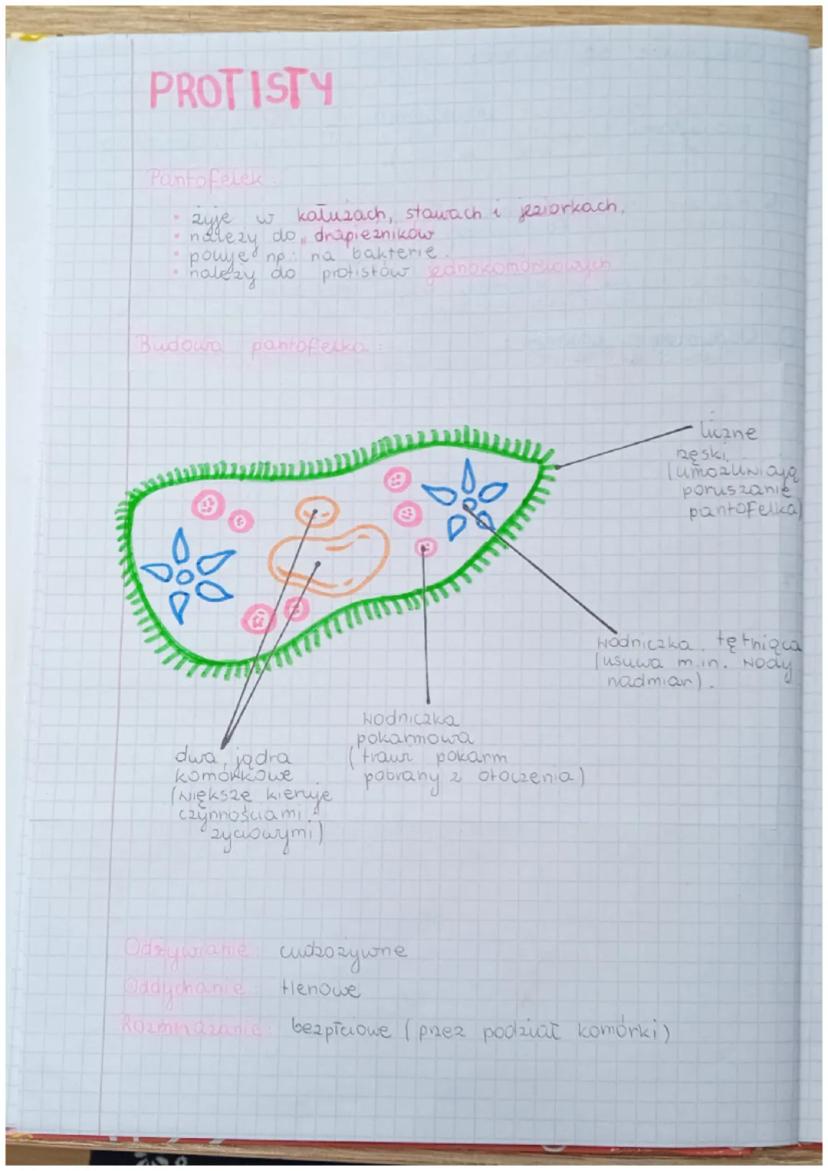 PROTISTY
Pantofelek:
• żyje w kałużach, stawach i jeziorkach,
• należy do drapieżników
• poluje np. na bakterie.
• należy do protistów jednokomórkowych
Budowa pantofelka:
liczne
rzęski
(umożliwiają
poruszanie
pantofelka)
wodniczka tętniąca
(usuwa m.in. wody
nadmiar).
wodniczka
pokarmowa
(trawi pokarm
pobrany z otoczenia)
dwa jądra
komórkowe
(większe kieruje
czynnościami
życiowymi)
Odżywianie: cudzożywne
Oddychanie: tlenowe
Rozmnażanie: bezpłciowe (przez podział komórki)